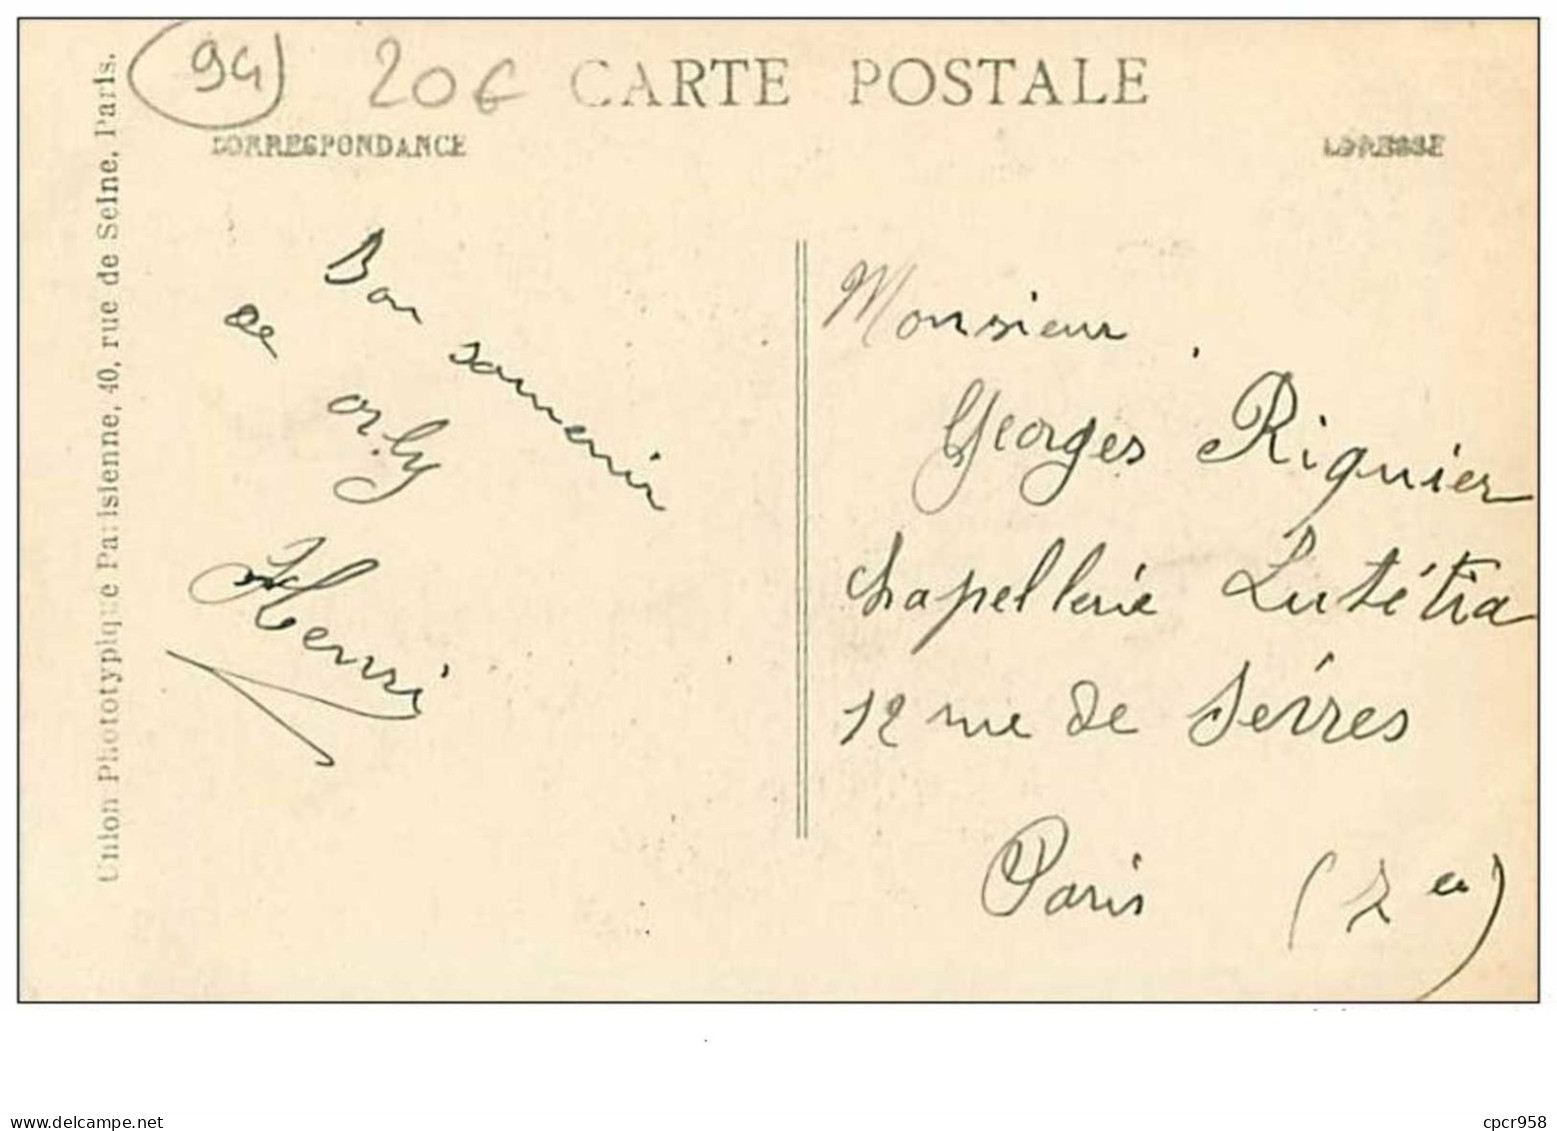 94
20€
CARTE POSTALE
CORRESPONDANCE
ADRESSE
Union Phototypique Parisienne, 40, rue de Seine, Paris.
Bon souvenir
de orly
Henri
Monsieur
Georges Riguier
Chapellerie Lutétia
12 rue de Sèvres
Paris (7 em)
https://www.delcampe.net
cpcr958